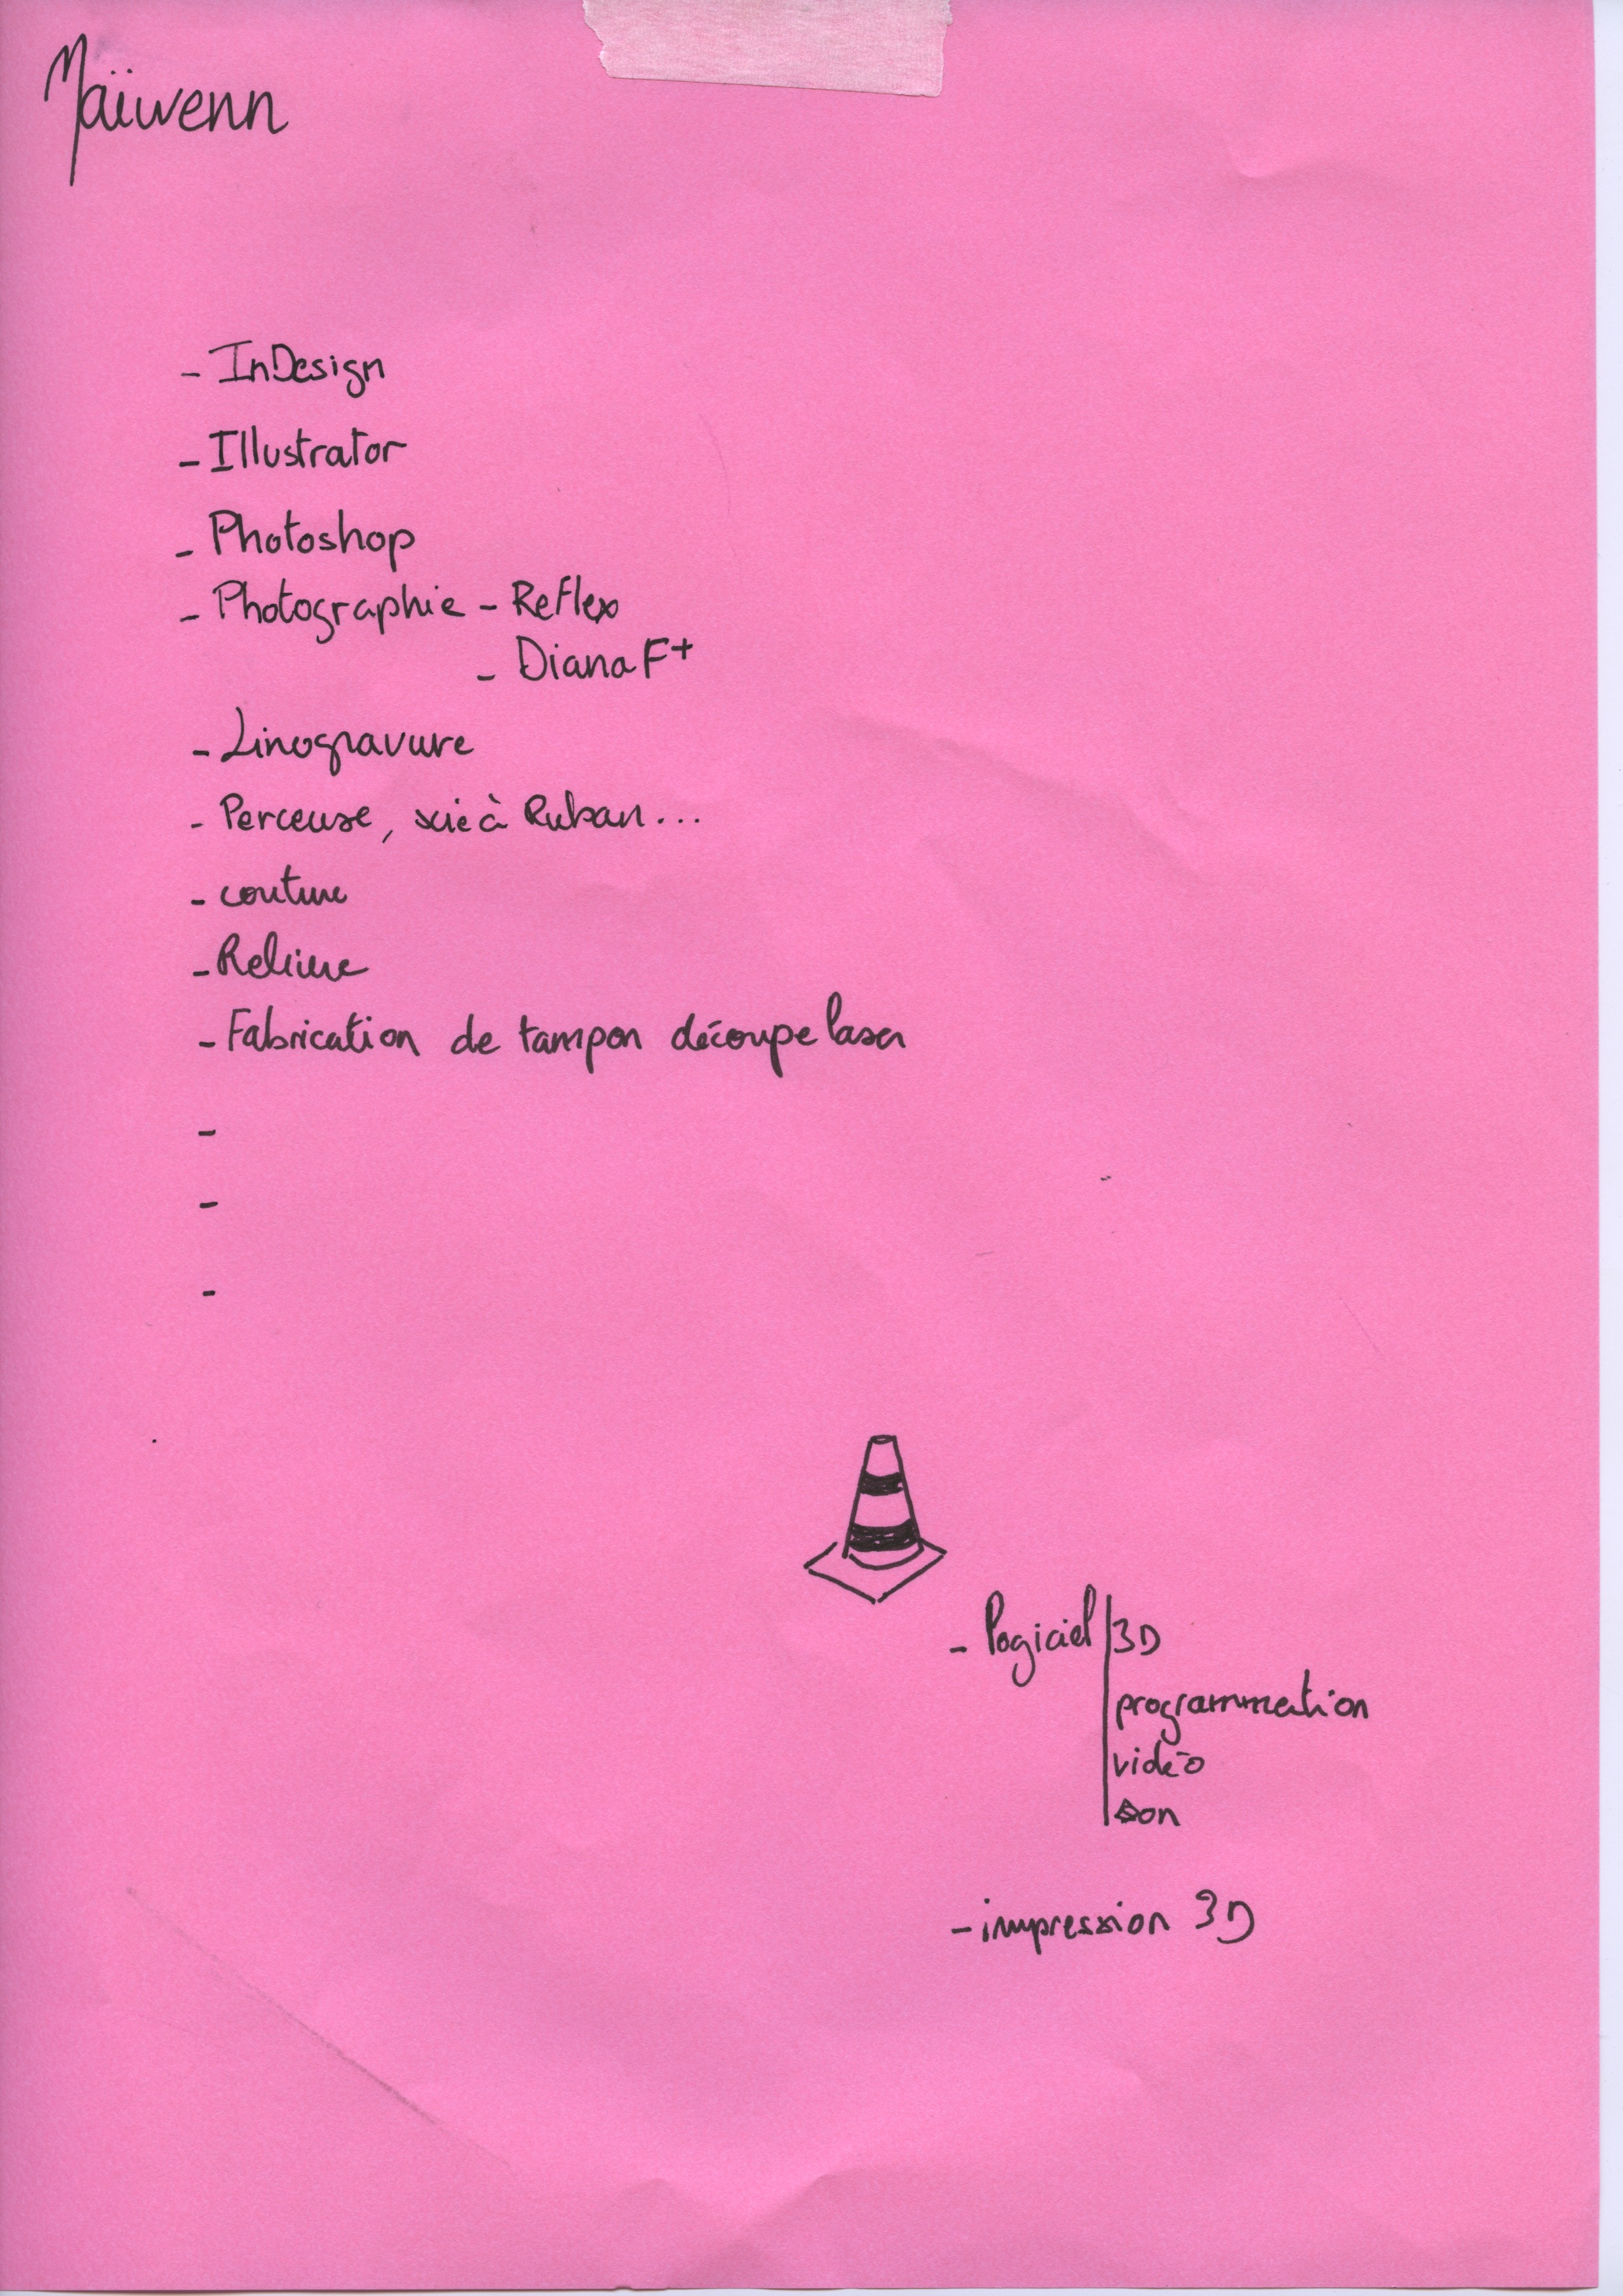 Maïwenn
- InDesign
- Illustrator
- Photoshop
- Photographie - Reflex
- Diana F+
- Linogravure
- Perceuse, scie à Ruban...
- couture
- Reliure
- Fabrication de tampon découpe laser
-
-
-
- logiciel | 3D
programmation
vidéo
son
- impression 3D